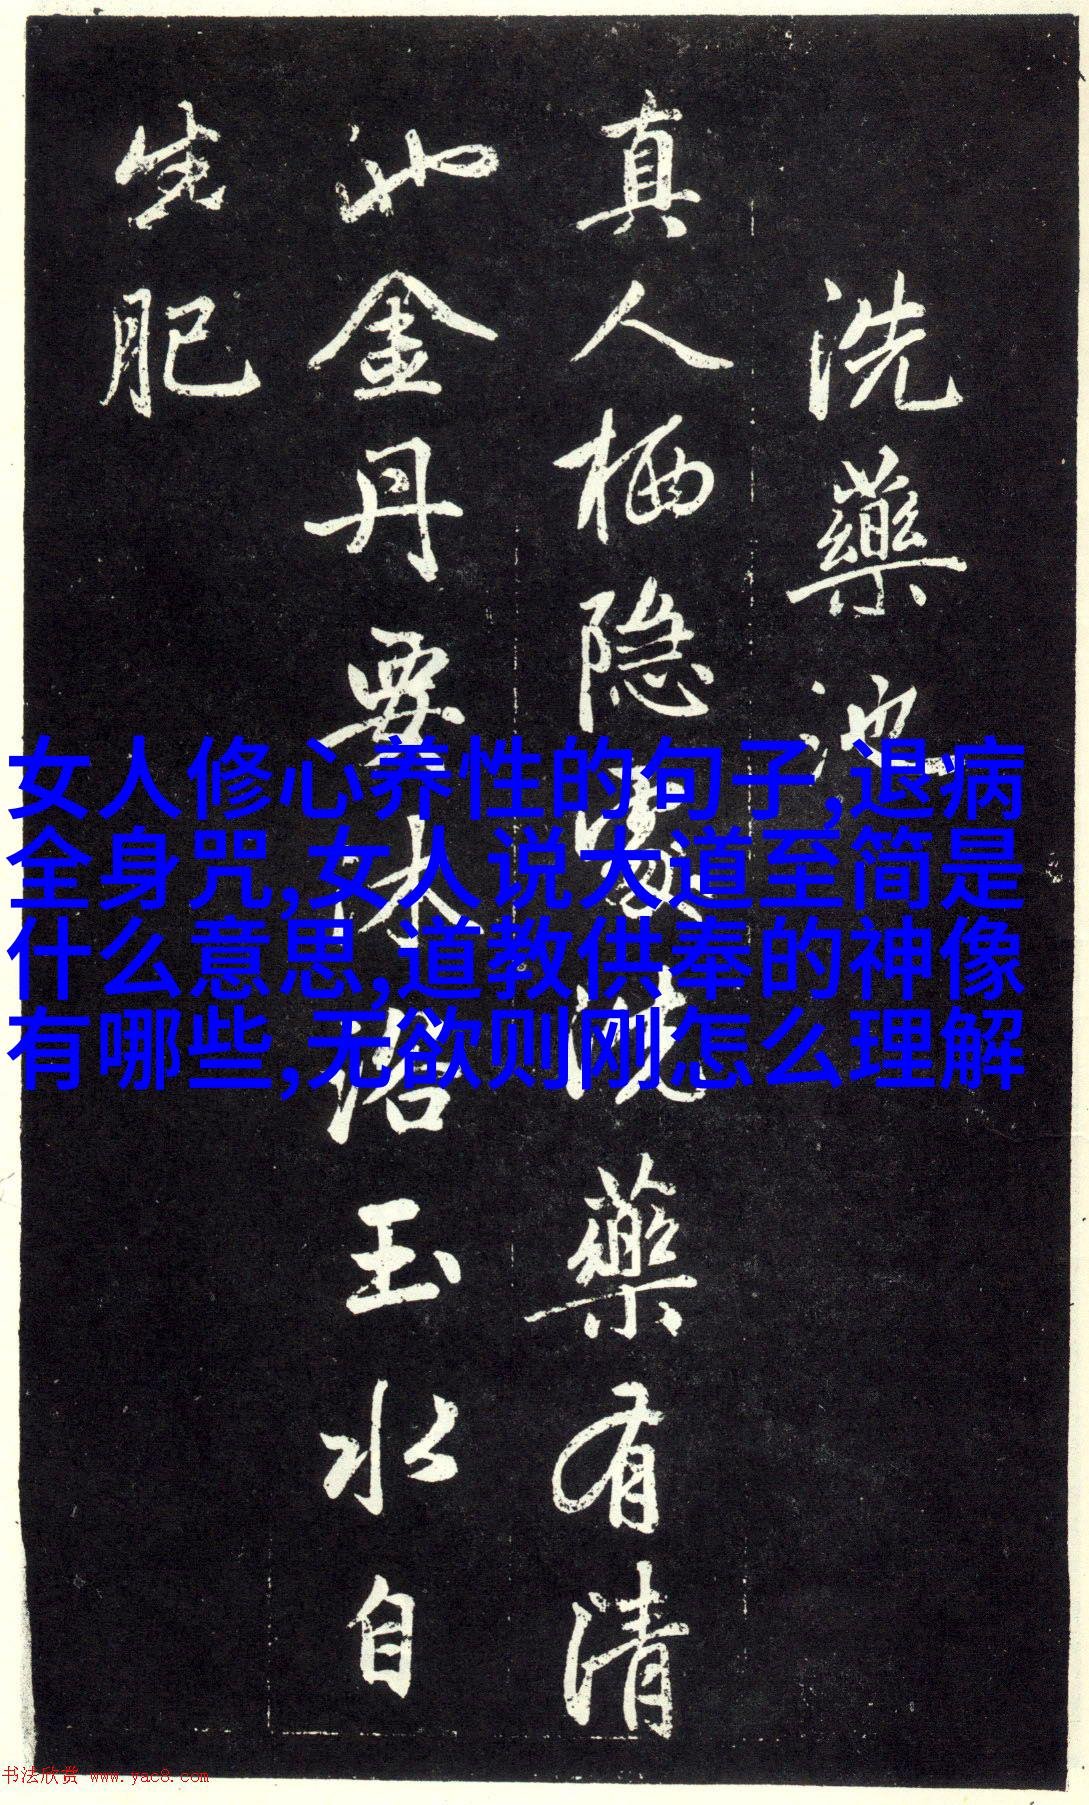 洗藥池
真人栖隱處洗藥有清
池金丹要沐浴玉水自
生肥
女人修心养性的句子,退病
全身咒,女人说大道至简是
什么意思,道教供奉的神像
有哪些,无欲则刚怎么理解
书法欣赏 www.yac8.com